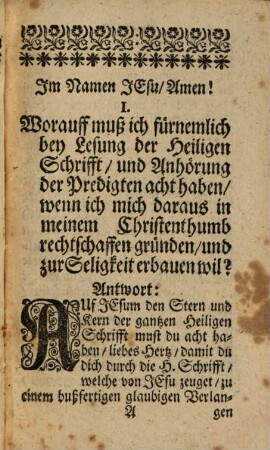 Im Namen JEsu/Amen!
I.
Worauff muß ich fürnemlich
bey Lesung der Heiligen
Schrifft/und Anhörung
der Predigten acht haben/
wenn ich mich daraus in
meinem Christenthumb
rechtschaffen gründen/und
zur Seligkeit erbauen wil?
Antwort:
AUf JEsum den Stern und
Kern der gantzen Heiligen
Schrifft must du acht ha-
ben/liebes Hertz/damit du
dich durch die H. Schrifft/
welche von JEsu zeuget/zu
einem bußfertigen glaubigen Verlan-
A gen